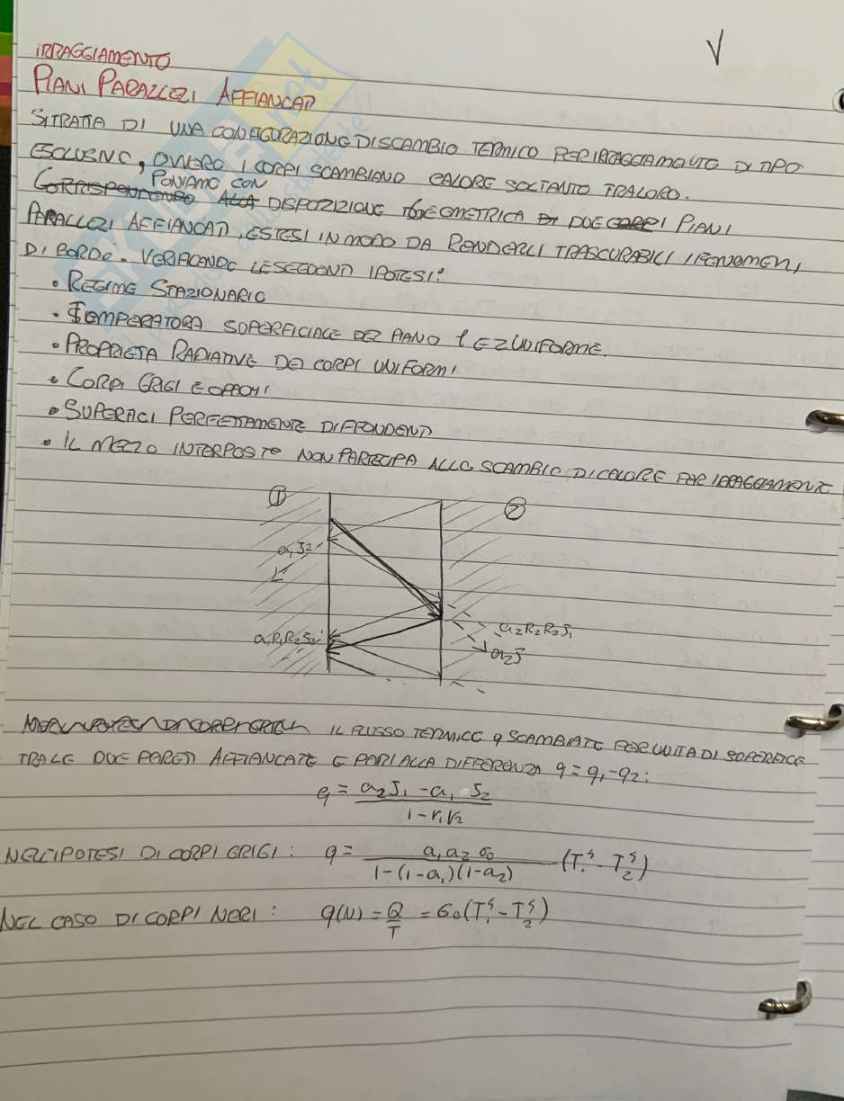 IRRAGGIAMENTO
PIANI PARALLELI AFFIANCATI
SI TRATTA DI UNA CONFIGURAZIONE DI SCAMBIO TERMICO PER IRRAGGIAMENTO DI TIPO
ESCLUSIVO, OVVERO I CORPI SCAMBIANO CALORE SOLTANTO TRA LORO.
PONIAMO CON
CORRISPONDONO ALLA DISPOZIZIONE GEOMETRICA DI DUE CORPI PIANI
PARALLELI AFFIANCATI, ESTESI IN MODO DA RENDERLI TRASCURABILI I FENOMENI
DI BORDO. VERIFICANDO LE SEGUENTI IPOTESI:
• REGIME STAZIONARIO
• TEMPERATURA SUPERFICIALE DEL PIANO 1 E 2 UNIFORME.
• PROPRIETA RADIATIVE DEI CORPI UNIFORMI
• CORPI GRIGI E OPACHI
• SUPERFICI PERFETTAMENTE DIFFONDENTI
• IL MEZZO INTERPOSTO NON PARTECIPA ALLO SCAMBIO DI CALORE PER IRRAGGIAMENTO
1 2
a₁J₂
a₁R₁R₂J₂ a₂R₂R₂J₁
a₂J
IL FLUSSO TERMICO q SCAMBIATO PER UNITA DI SUPERFICE
TRA LE DUE PARETI AFFIANCATE E PARI ALLA DIFFERENZA q = q₁ - q₂:
q = a₂J₁ - a₁ J₂ / 1 - r₁r₂
NELL'IPOTESI DI CORPI GRIGI: q = a₁a₂σ₀ / 1-(1-a₁)(1-a₂) (T₁⁴ - T₂⁴)
NEL CASO DI CORPI NERI: q(N) = Q/T = σ₀(T₁⁴ - T₂⁴)